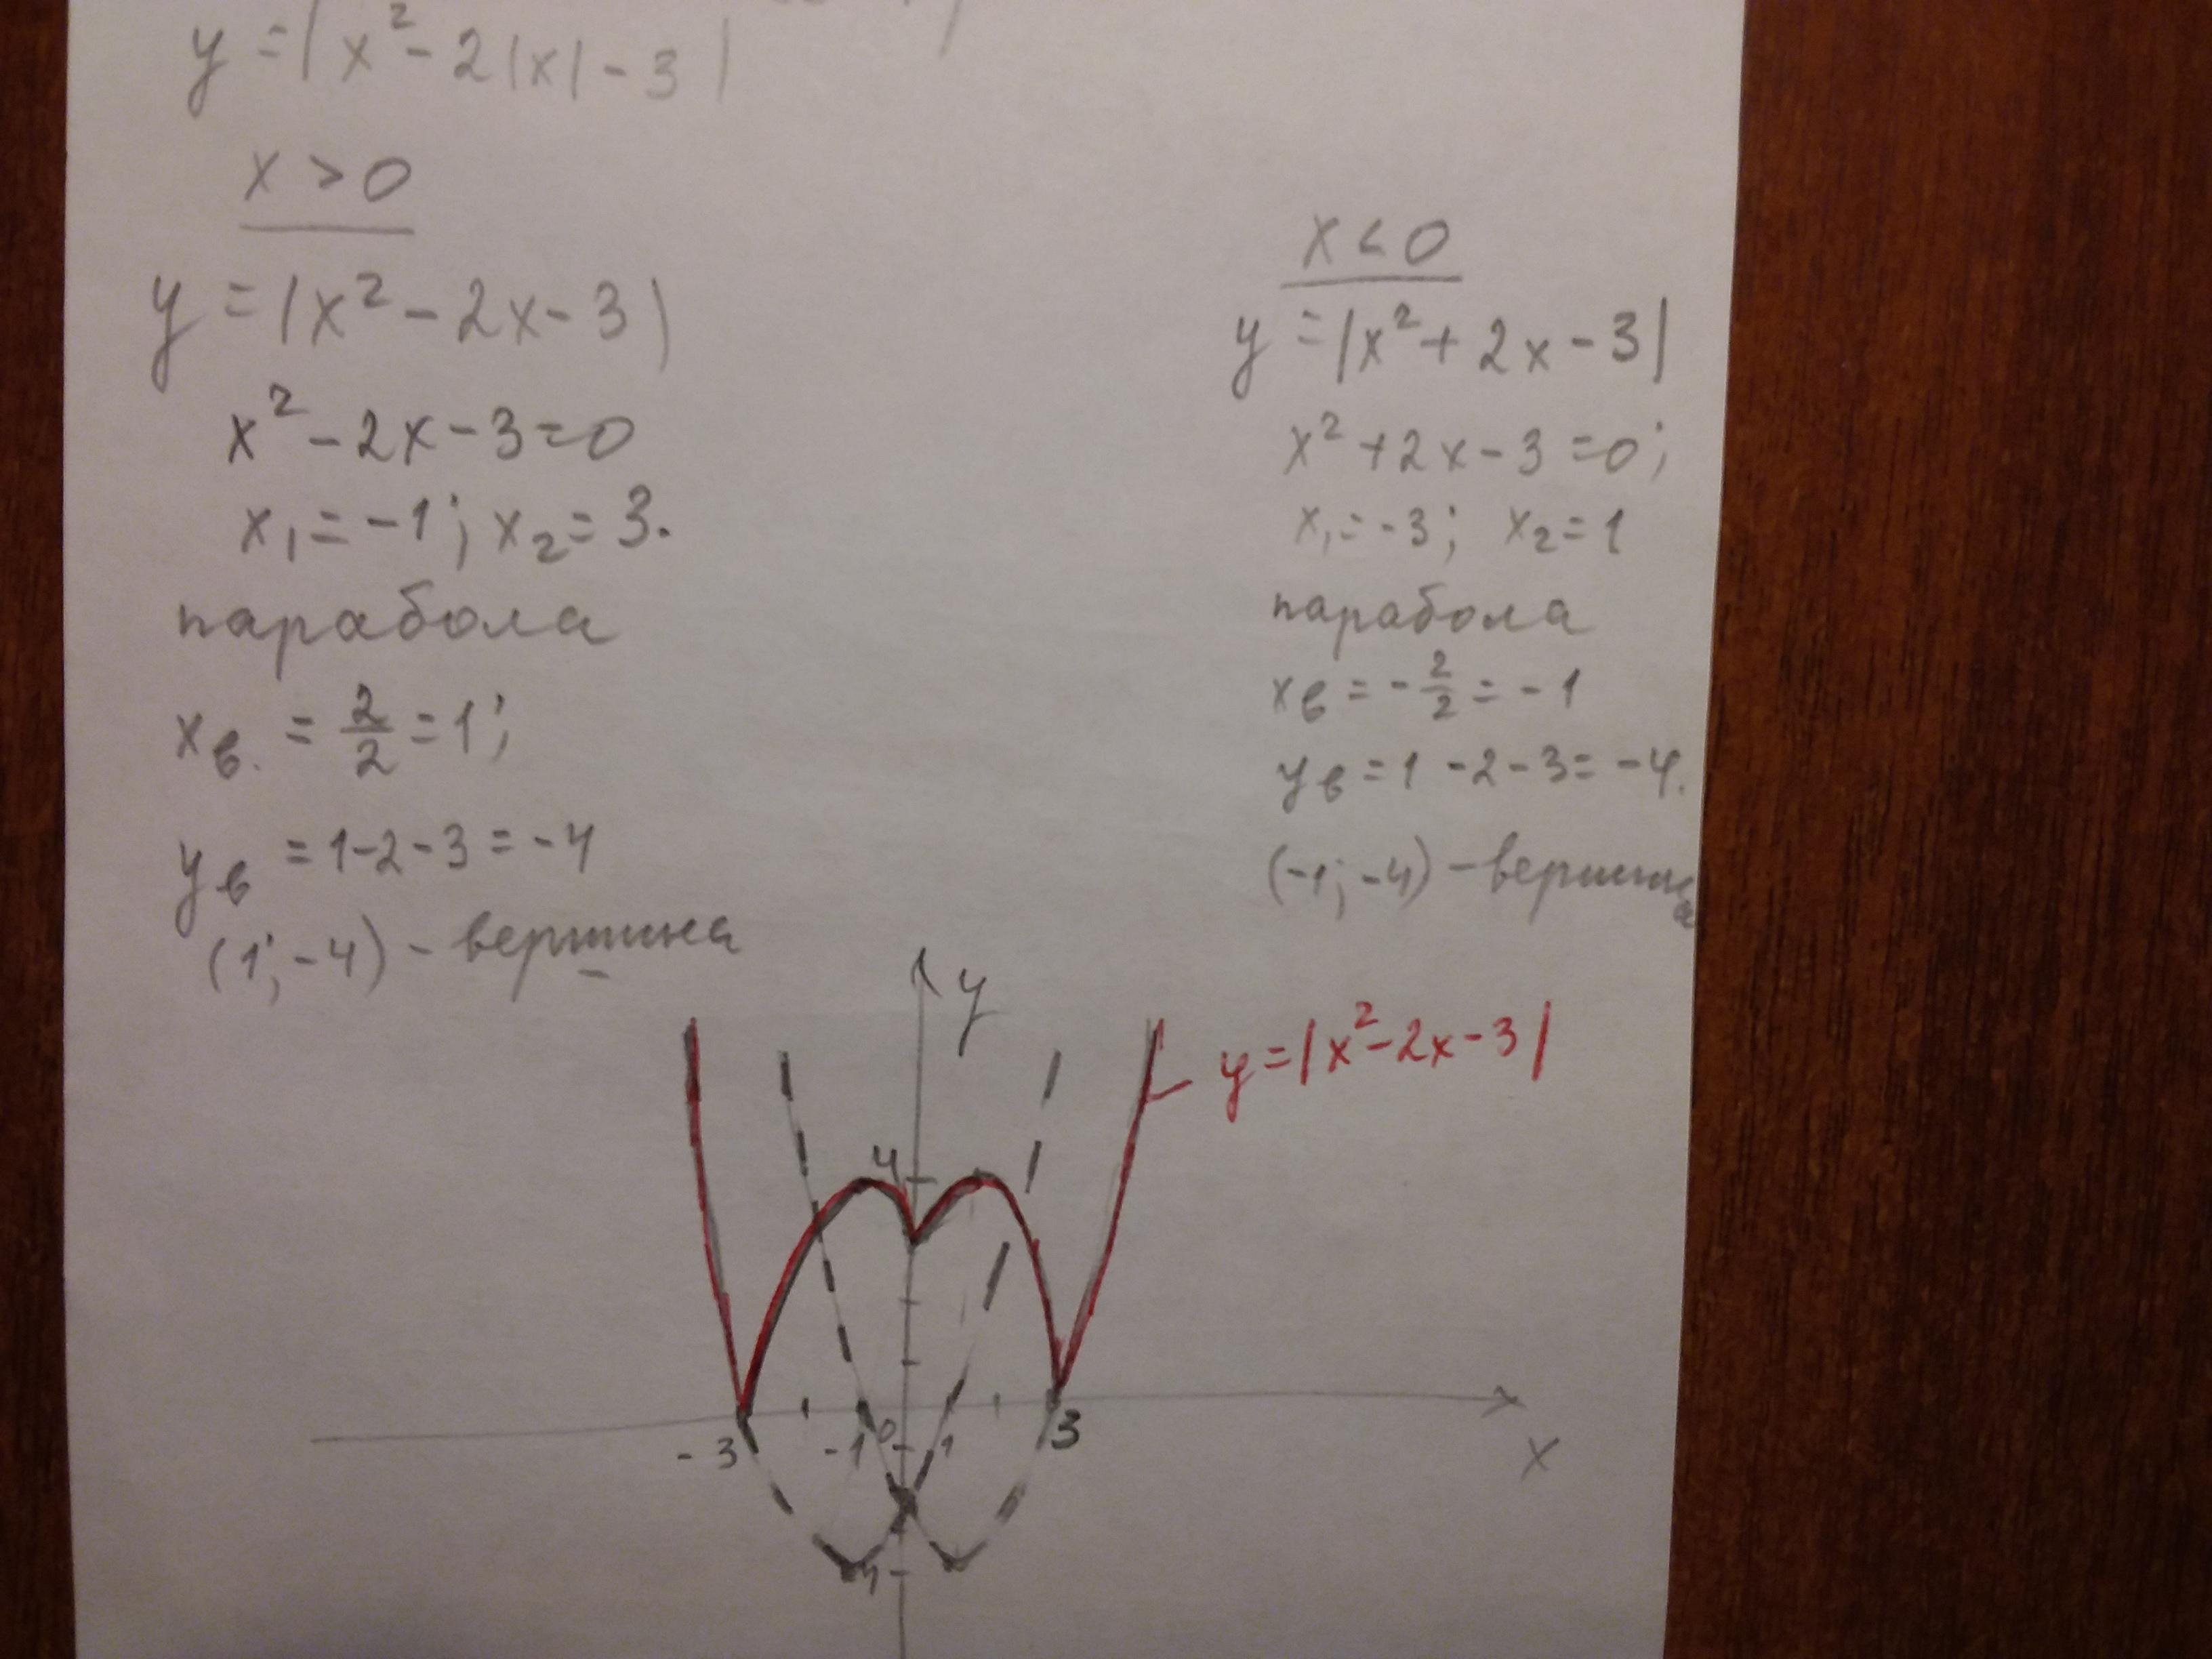 y = |x² - 2|x| - 3|
x > 0
y = |x² - 2x - 3|
x² - 2x - 3 = 0
x₁ = -1; x₂ = 3.
парабола
xв. = 2/2 = 1;
yв = 1 - 2 - 3 = -4
(1; -4) - вершина
x < 0
y = |x² + 2x - 3|
x² + 2x - 3 = 0;
x₁ = -3; x₂ = 1
парабола
xв = - 2/2 = -1
yв = 1 - 2 - 3 = -4.
(-1; -4) - вершина
y
y = |x² - 2x - 3|
4
-3 -1 0 1 3
x